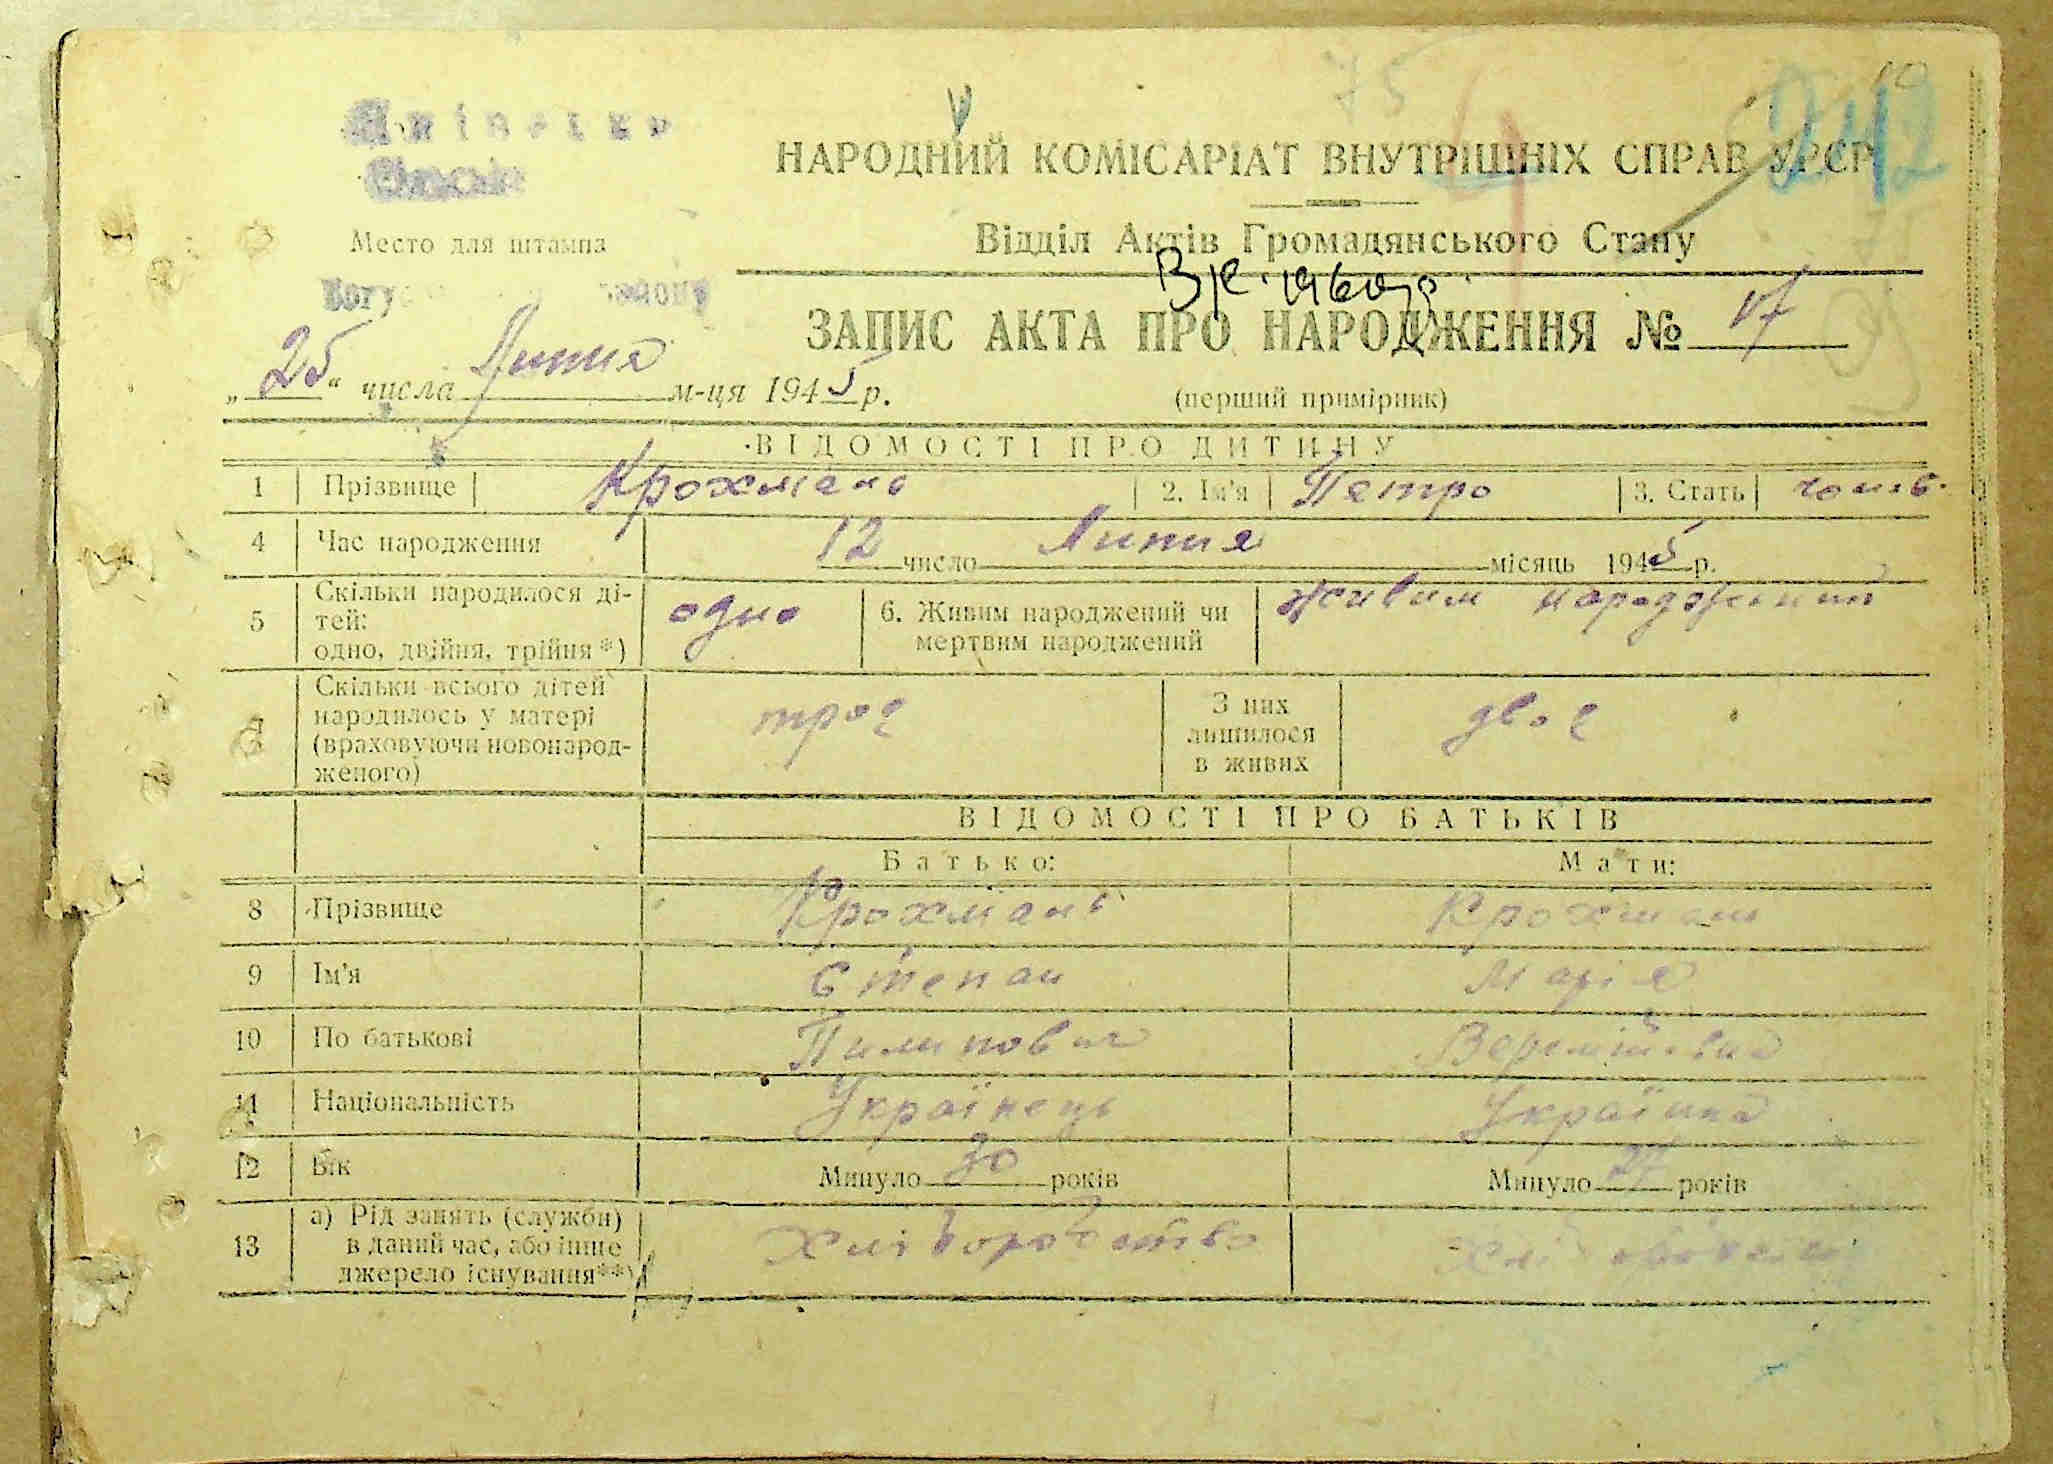 75
10
242
4
НАРОДНИЙ КОМІСАРІАТ ВНУТРІШНІХ СПРАВ УРСР
Место для штампа
Відділ Актів Громадянського Стану
ЗАПИС АКТА ПРО НАРОДЖЕННЯ № 17
„25“ числа Липня м-ця 1945 р.
(перший примірник)
ВІДОМОСТІ ПРО ДИТИНУ
1 Прізвище Крохмаль 2. Ім'я Петро 3. Стать чолов.
4 Час народження 12 число Липня місяць 1945 р.
5 Скільки народилося ді-
тей:
одно, двійня, трійня*) одно 6. Живим народжений чи
мертвим народжений живим народжений
7 Скільки всього дітей
народилось у матері
(враховуючи новонарод-
женого) троє З них
лишилося
в живих двоє
ВІДОМОСТІ ПРО БАТЬКІВ
Батько: Мати:
8 Прізвище Крохмаль Крохмаль
9 Ім'я Степан Марія
10 По батькові Пилипович
11 Національність Українець Українка
12 Вік Минуло 30 років Минуло років
13 а) Рід занять (служби)
в даний час, або інше
джерело існування**) Хліборобство